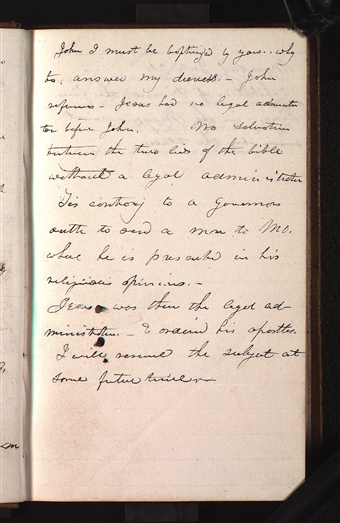 John I must be baptized by you.. why
to. answer my decrees. – John
refuses – Jesus had no legal adminstra
tor before John. No Salvation
between the two lids of the bible
without a legal administrator
Tis contrary to a Governors
oath to send a man to MO.
where he is proscribed in his
religious opinions. –
Jesus was then the legal ad-
ministrator. – & ordaind his apostles.
I will resume the subject at
some future time